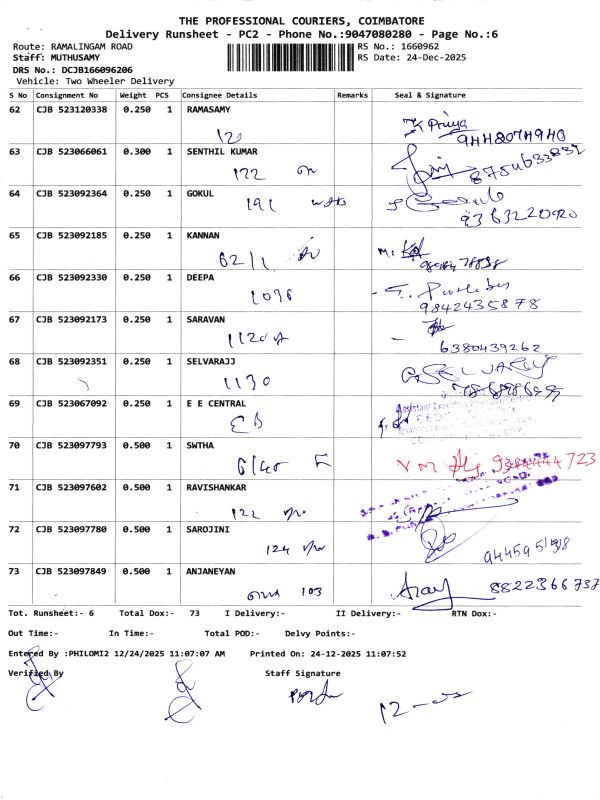 THE PROFESSIONAL COURIERS, COIMBATORE
Delivery Runsheet - PC2 - Phone No.:9047080280 - Page No.:6
Route: RAMALINGAM ROAD
RS No.: 1660962
Staff: MUTHUSAMY
RS Date: 24-Dec-2025
DRS No.: DCJB166096206
Vehicle: Two Wheeler Delivery
S No Consignment No Weight PCS Consignee Details Remarks Seal & Signature
62 CJB 523120338 0.250 1 RAMASAMY
K Priya
120
9448074940
63 CJB 523066061 0.300 1 SENTHIL KUMAR
122
64 CJB 523092364 0.250 1 GOKUL
191
9363220920
65 CJB 523092185 0.250 1 KANNAN
62/1
66 CJB 523092330 0.250 1 DEEPA
1096
9842435878
67 CJB 523092173 0.250 1 SARAVAN
1120
6380439262
68 CJB 523092351 0.250 1 SELVARAJJ
G. SELVARAJ
1130
69 CJB 523067092 0.250 1 E E CENTRAL
EB
70 CJB 523097793 0.500 1 SWTHA
71 CJB 523097602 0.500 1 RAVISHANKAR
122
72 CJB 523097780 0.500 1 SAROJINI
124
73 CJB 523097849 0.500 1 ANJANEYAN
8822366737
103
Tot. Runsheet:- 6 Total Dox:- 73 I Delivery:- II Delivery:- RTN Dox:-
Out Time:- In Time:- Total POD:- Delvy Points:-
Entered By :PHILOMI2 12/24/2025 11:07:07 AM Printed On: 24-12-2025 11:07:52
Verified By Staff Signature